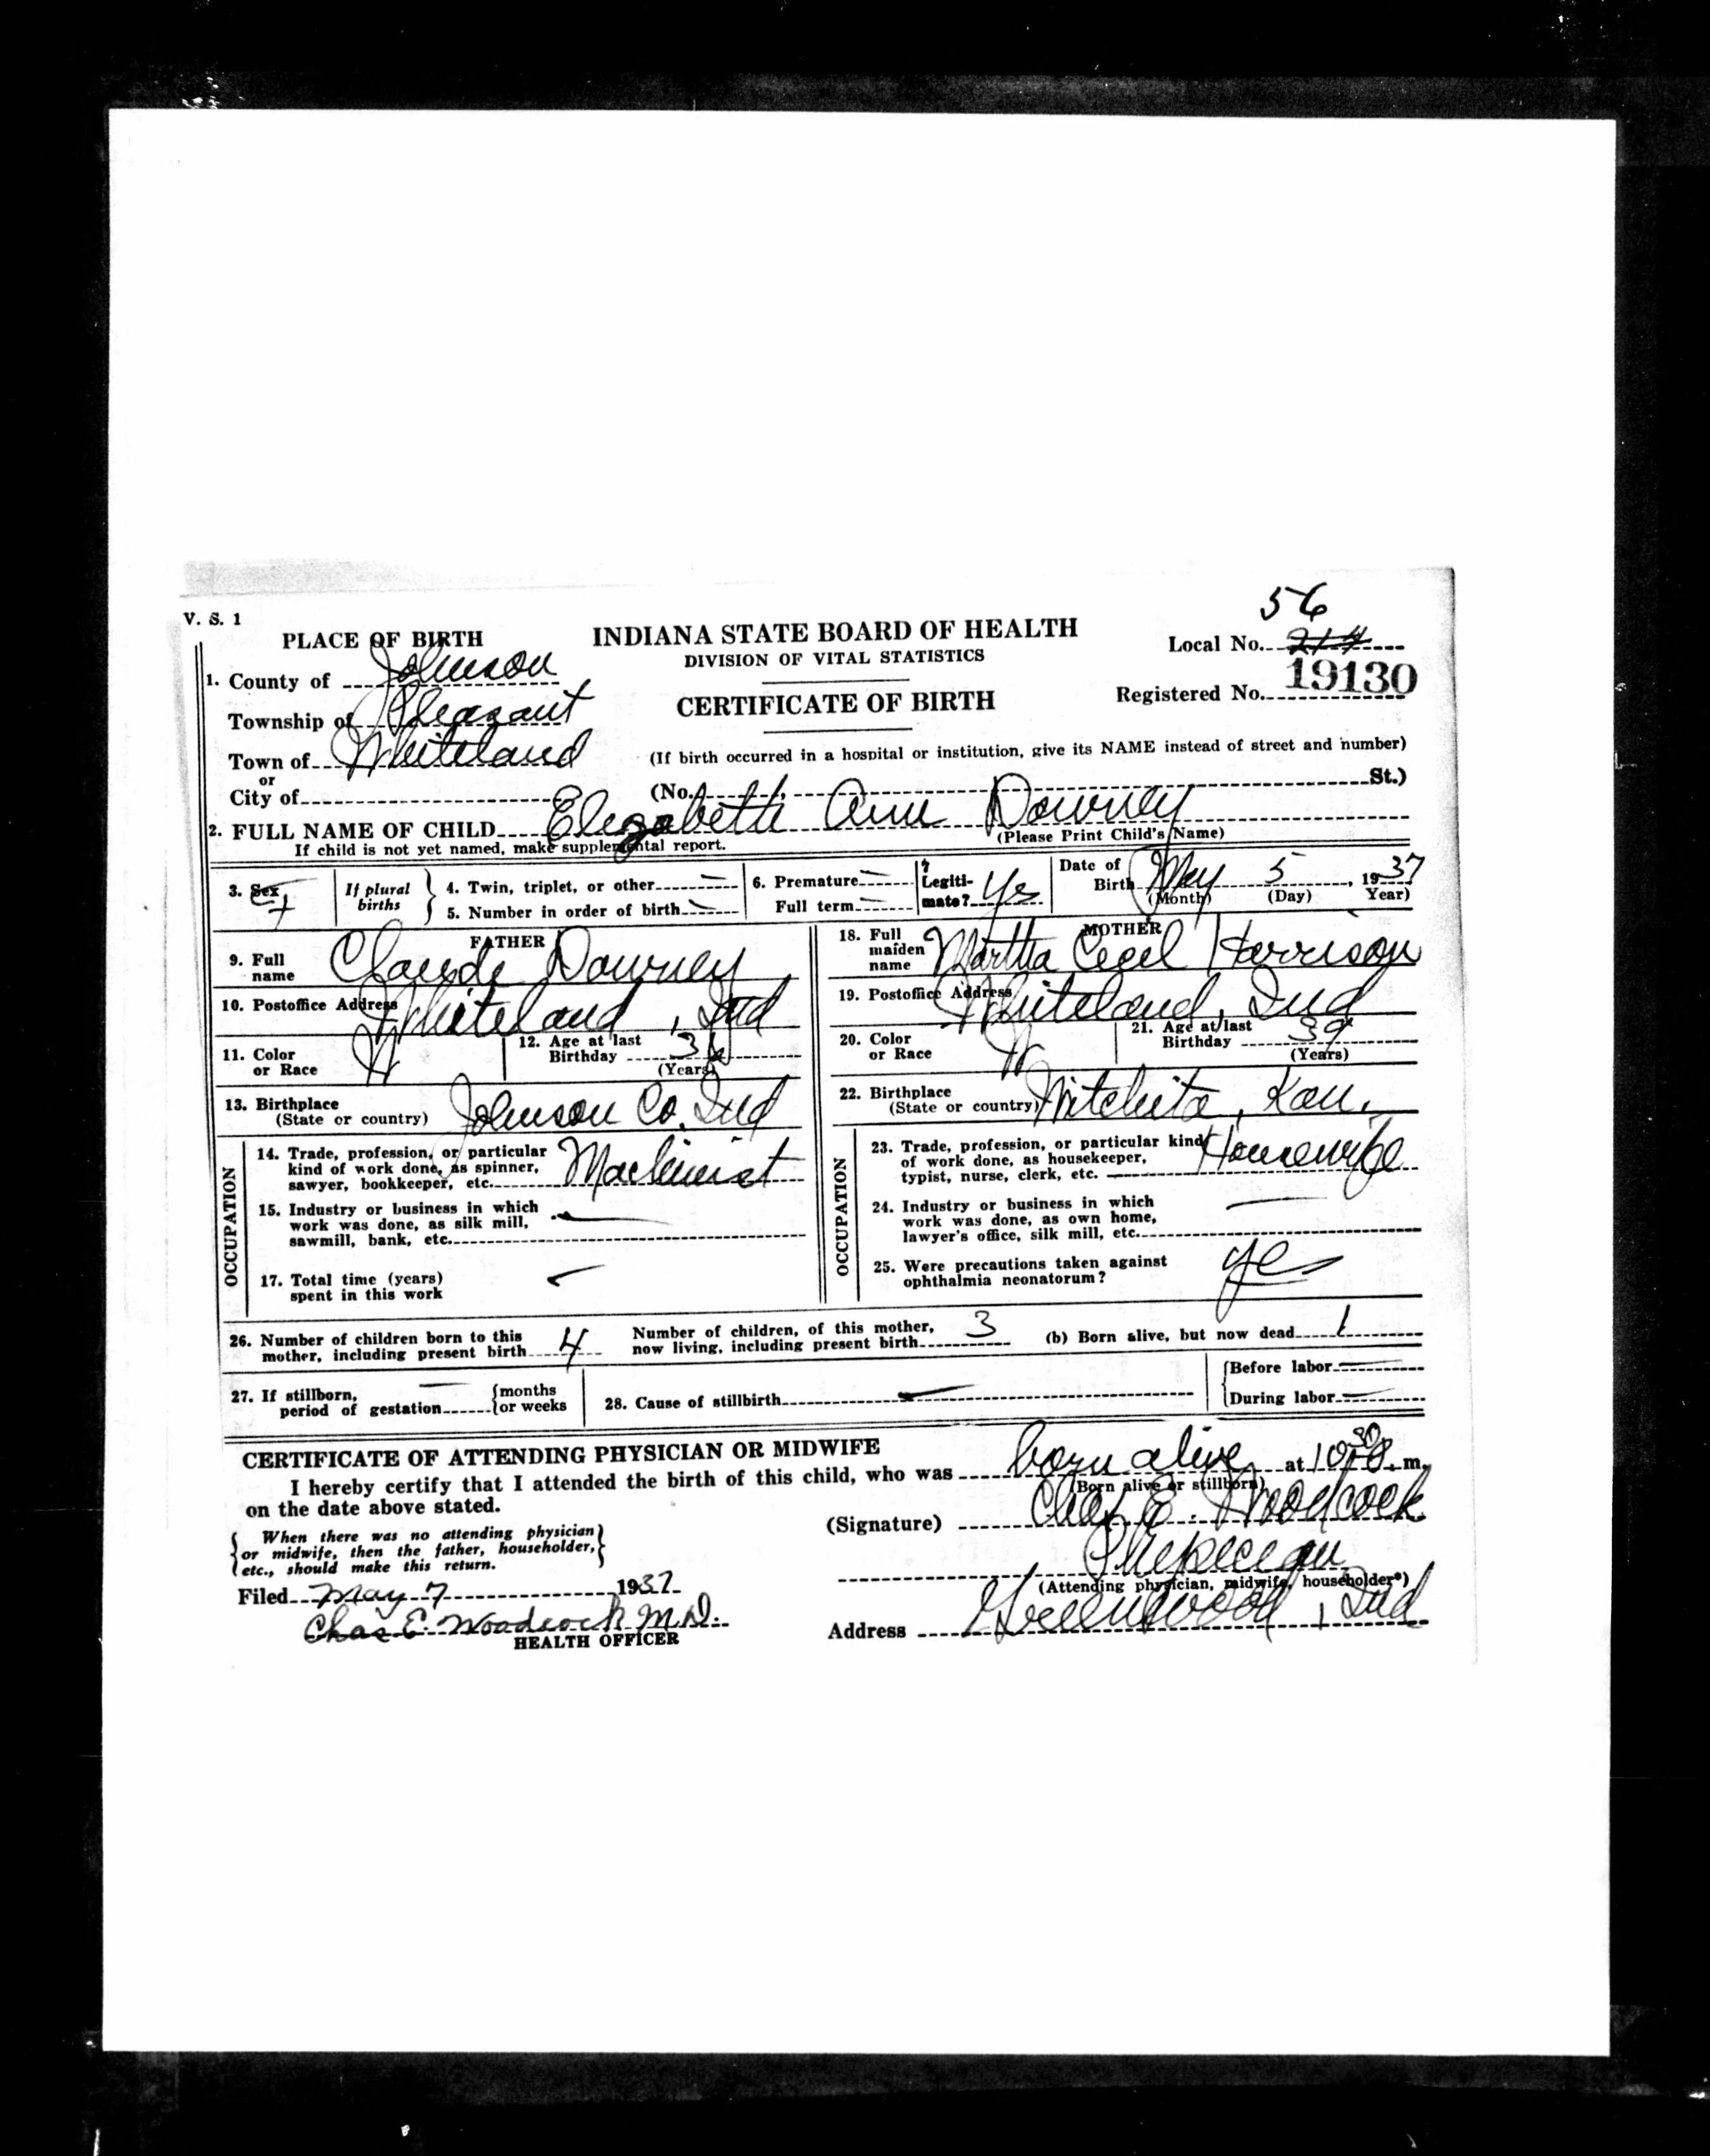 V. S. 1
56
PLACE OF BIRTH
INDIANA STATE BOARD OF HEALTH
Local No. 214
DIVISION OF VITAL STATISTICS
1. County of Johnson
Registered No. 19130
CERTIFICATE OF BIRTH
Township of Pleasant
Town of Whiteland
(If birth occurred in a hospital or institution, give its NAME instead of street and number)
or
City of
(No. , St.)
2. FULL NAME OF CHILD Elizabeth Ann Downey
(Please Print Child's Name)
If child is not yet named, make supplemental report.
3. Sex f
If plural births
4. Twin, triplet, or other —
5. Number in order of birth —
6. Premature —
Full term —
7 Legiti-
mate? Yes
Date of
Birth May 5, 1937
(Month) (Day) Year)
FATHER
9. Full
name Claude Downey
10. Postoffice Address Whiteland, Ind
11. Color
or Race W
12. Age at last
Birthday 36
(Years)
13. Birthplace
(State or country) Johnson Co. Ind
OCCUPATION
14. Trade, profession, or particular
kind of work done, as spinner,
sawyer, bookkeeper, etc. Machinist
15. Industry or business in which
work was done, as silk mill,
sawmill, bank, etc. —
17. Total time (years)
spent in this work
MOTHER
18. Full
maiden
name Martha Cecel Harrison
19. Postoffice Address Whiteland, Ind
20. Color
or Race W
21. Age at last
Birthday 39
(Years)
22. Birthplace
(State or country) Witchita, Kan.
OCCUPATION
23. Trade, profession, or particular kind
of work done, as housekeeper,
typist, nurse, clerk, etc. Housewife
24. Industry or business in which
work was done, as own home,
lawyer's office, silk mill, etc. —
25. Were precautions taken against
ophthalmia neonatorum? yes
26. Number of children born to this
mother, including present birth 4
Number of children, of this mother,
now living, including present birth 3
(b) Born alive, but now dead 1
27. If stillborn,
period of gestation — {months
{or weeks
28. Cause of stillbirth —
{Before labor —
{During labor —
CERTIFICATE OF ATTENDING PHYSICIAN OR MIDWIFE
I hereby certify that I attended the birth of this child, who was born alive at 10:30 m.
(Born alive or stillborn)
on the date above stated.
(Signature) Chas. E. Woodcock
{ When there was no attending physician }
or midwife, then the father, householder,
etc., should make this return.
Physician
(Attending physician, midwife, householder*)
Filed May 7 1937
Chas E. Woodcock M.D.
HEALTH OFFICER
Address Greenwood, Ind